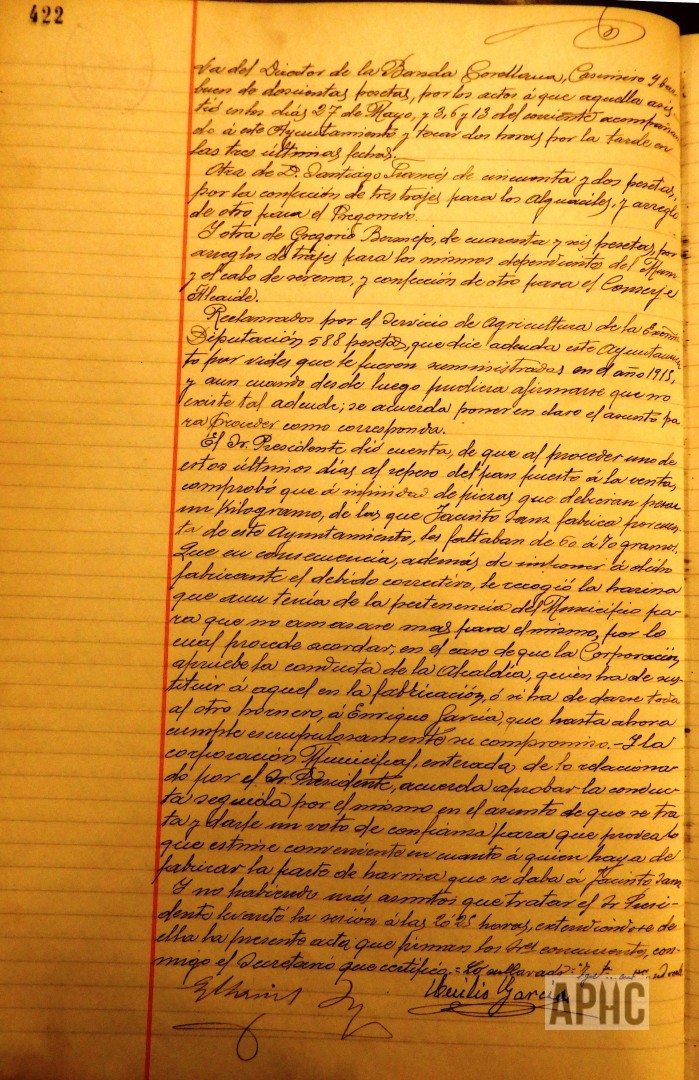 422
da del Director de la Banda Corellana, Casimiro
buen de doscientas pesetas, por los actos á que aquella asis-
tió en los días 27 de Mayo, y 3, 6 y 13 del corriente acompañan-
do á este Ayuntamiento y tocar dos horas por la tarde en
las tres últimas fechas.
Otra de D. Santiago Francés de cincuenta y dos pesetas,
por la confección de tres trajes para los Alguaciles, y arreglo
de otro para el Pregonero.
Y otra de Gregorio Bermejo, de cuarenta y seis pesetas, por
arreglos de trajes para los mismos dependientes del Mun
y el cabo de serenos, y confección de otro para el Conserje
Alcaide.
Reclamados por el Servicio de Agricultura de la Excma
Diputación 588 pesetas, que dice adeuda este Ayuntamien
to por vides que le fueron suministradas en el año 1915,
y aun cuando desde luego pudiera afirmarse que no
existe tal adeudo; se acuerda poner en claro el asunto pa
ra proceder como corresponda.
El Sr. Presidente dió cuenta, de que al proceder uno de
estos últimos días al repeso del pan puesto á la venta,
comprobó que á infinidad de piezas que debieran pesar
un kilogramo, de las que Jacinto Sanz fabrica por cuen-
ta de este Ayuntamiento, les faltaban de 60 á 70 gramos.
Que en consecuencia, además de imponer á dicho
fabricante el debido correctivo, le recogió la harina
que aun tenía de la pertenencia del Municipio pa-
ra que no amasare mas para el mismo, por lo
cual procede acordar, en el caso de que la Corporación
apruebe la conducta de la Alcaldía, quién ha de sus-
tituir á aquel en la fabricación, ó si ha de darse toda
al otro hornero, á Enrique García, que hasta ahora
cumple escrupulosamente su compromiso. - Y la
corporación Municipal, enterada de lo relaciona-
do por el Sr. Presidente, acuerda aprobar la conduc-
ta seguida por el mismo en el asunto de que se tra
ta y darle un voto de confianza para que provea lo
que estime conveniente en cuanto á quien haya de
fabricar la parte de harina que se daba á Jacinto Sanz
Y no habiendo más asuntos que tratar el Sr Presi-
dente levantó la sesión á las 20'25 horas, extendiéndose de
ella la presente acta que firman los Sres concurrentes, con-
migo el Secretario que certifico =
Cecilio García
APHC